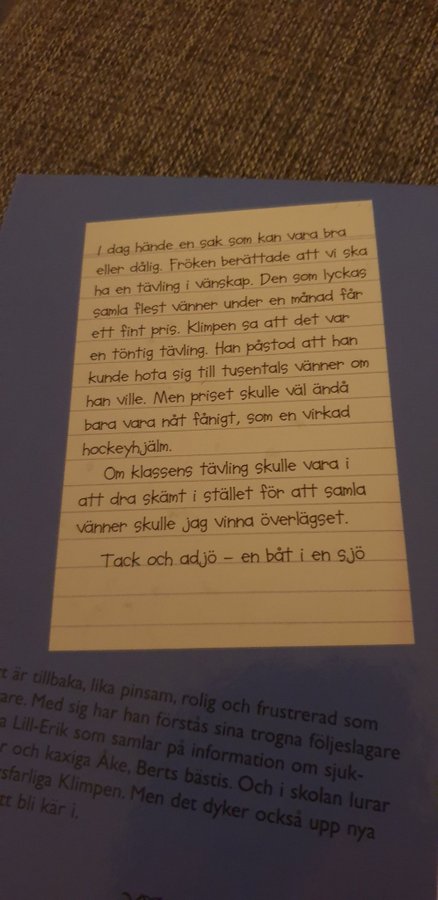 I dag hände en sak som kan vara bra
eller dålig. Fröken berättade att vi ska
ha en tävling i vänskap. Den som lyckas
samla flest vänner under en månad får
ett fint pris. Klimpen sa att det var
en töntig tävling. Han påstod att han
kunde hota sig till tusentals vänner om
han ville. Men priset skulle väl ändå
bara vara nåt fånigt, som en virkad
hockeyhjälm.
Om klassens tävling skulle vara i
att dra skämt i stället för att samla
vänner skulle jag vinna överlägset.
Tack och adjö – en båt i en sjö
är tillbaka, lika pinsam, rolig och frustrerad som
are. Med sig har han förstås sina trogna följeslagare
a Lill-Erik som samlar på information om sjuk-
r och kaxiga Åke, Berts bästis. Och i skolan lurar
sfarliga Klimpen. Men det dyker också upp nya
tt bli kär i.